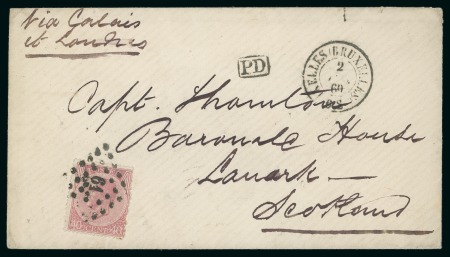 Via Calais
et Londres
PD
IXELLES (BRUXELLES)
2
69
Capt. Thornton
Baronald House
Lanark —
Scotland